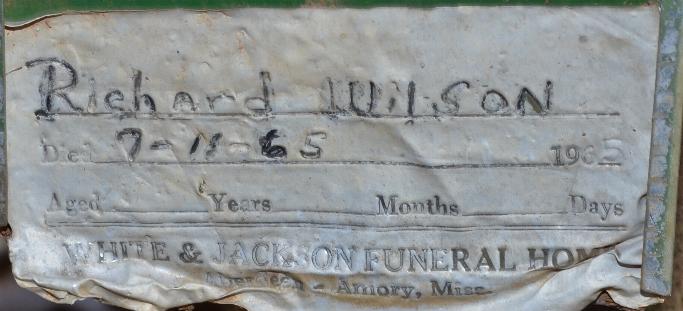 Richard Wilson
Died 7-11-65 1965
Aged Years Months Days
WHITE & JACKSON FUNERAL HOME
Aberdeen - Amory, Miss.